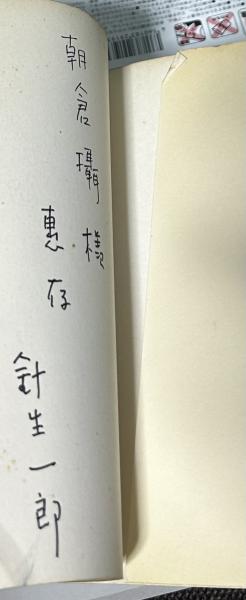 朝倉攝様
惠存
針生一郎